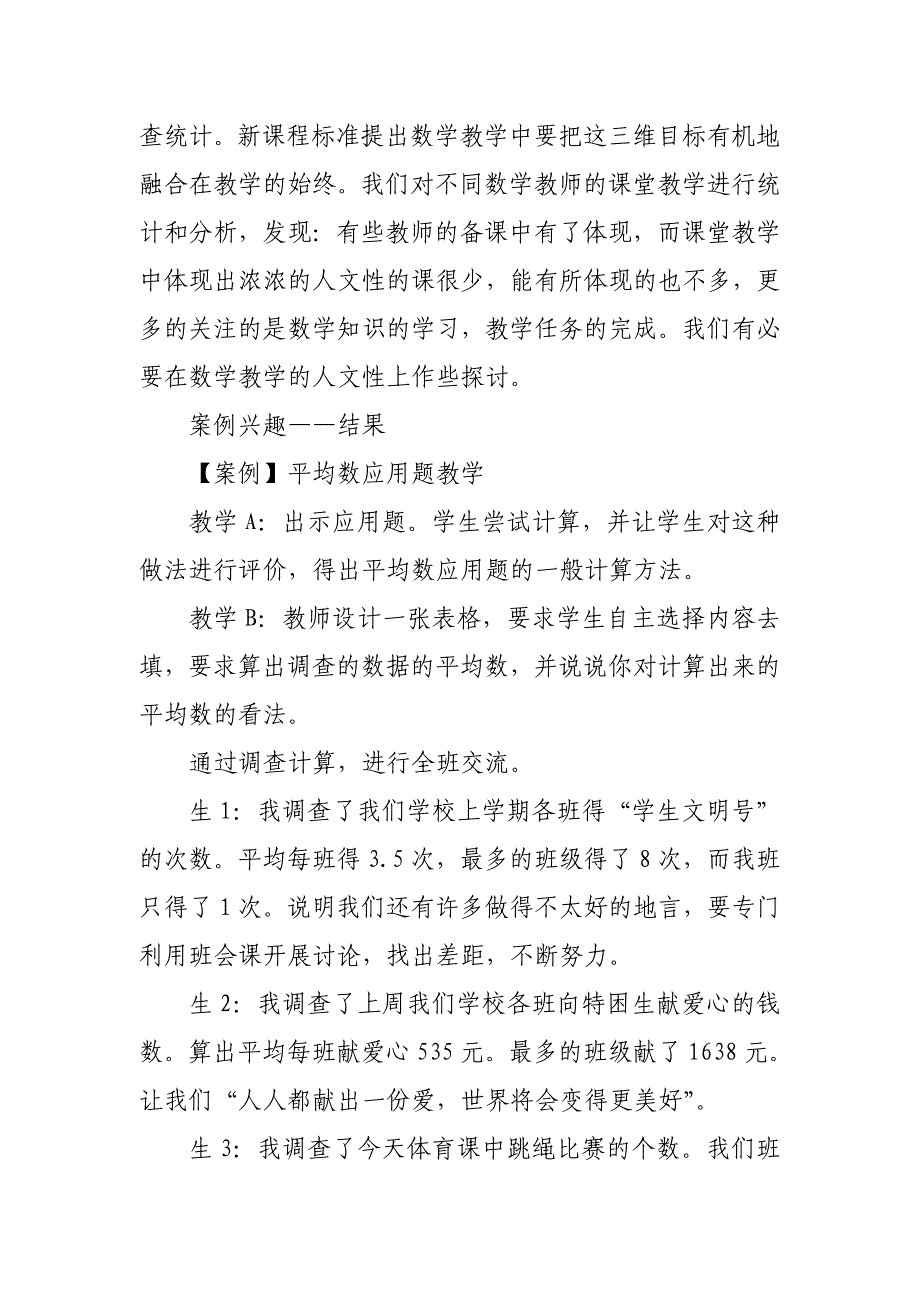 查统计。新课程标准提出数学教学中要把这三维目标有机地
融合在教学的始终。我们对不同数学教师的课堂教学进行统
计和分析，发现：有些教师的备课中有了体现，而课堂教学
中体现出浓浓的人文性的课很少，能有所体现的也不多，更
多的关注的是数学知识的学习，教学任务的完成。我们有必
要在数学教学的人文性上作些探讨。
案例兴趣——结果
【案例】平均数应用题教学
教学 A：出示应用题。学生尝试计算，并让学生对这种
做法进行评价，得出平均数应用题的一般计算方法。
教学 B：教师设计一张表格，要求学生自主选择内容去
填，要求算出调查的数据的平均数，并说说你对计算出来的
平均数的看法。
通过调查计算，进行全班交流。
生 1：我调查了我们学校上学期各班得“学生文明号”
的次数。平均每班得 3.5 次，最多的班级得了 8 次，而我班
只得了 1 次。说明我们还有许多做得不太好的地言，要专门
利用班会课开展讨论，找出差距，不断努力。
生 2：我调查了上周我们学校各班向特困生献爱心的钱
数。算出平均每班献爱心 535 元。最多的班级献了 1638 元。
让我们“人人都献出一份爱，世界将会变得更美好”。
生 3：我调查了今天体育课中跳绳比赛的个数。我们班